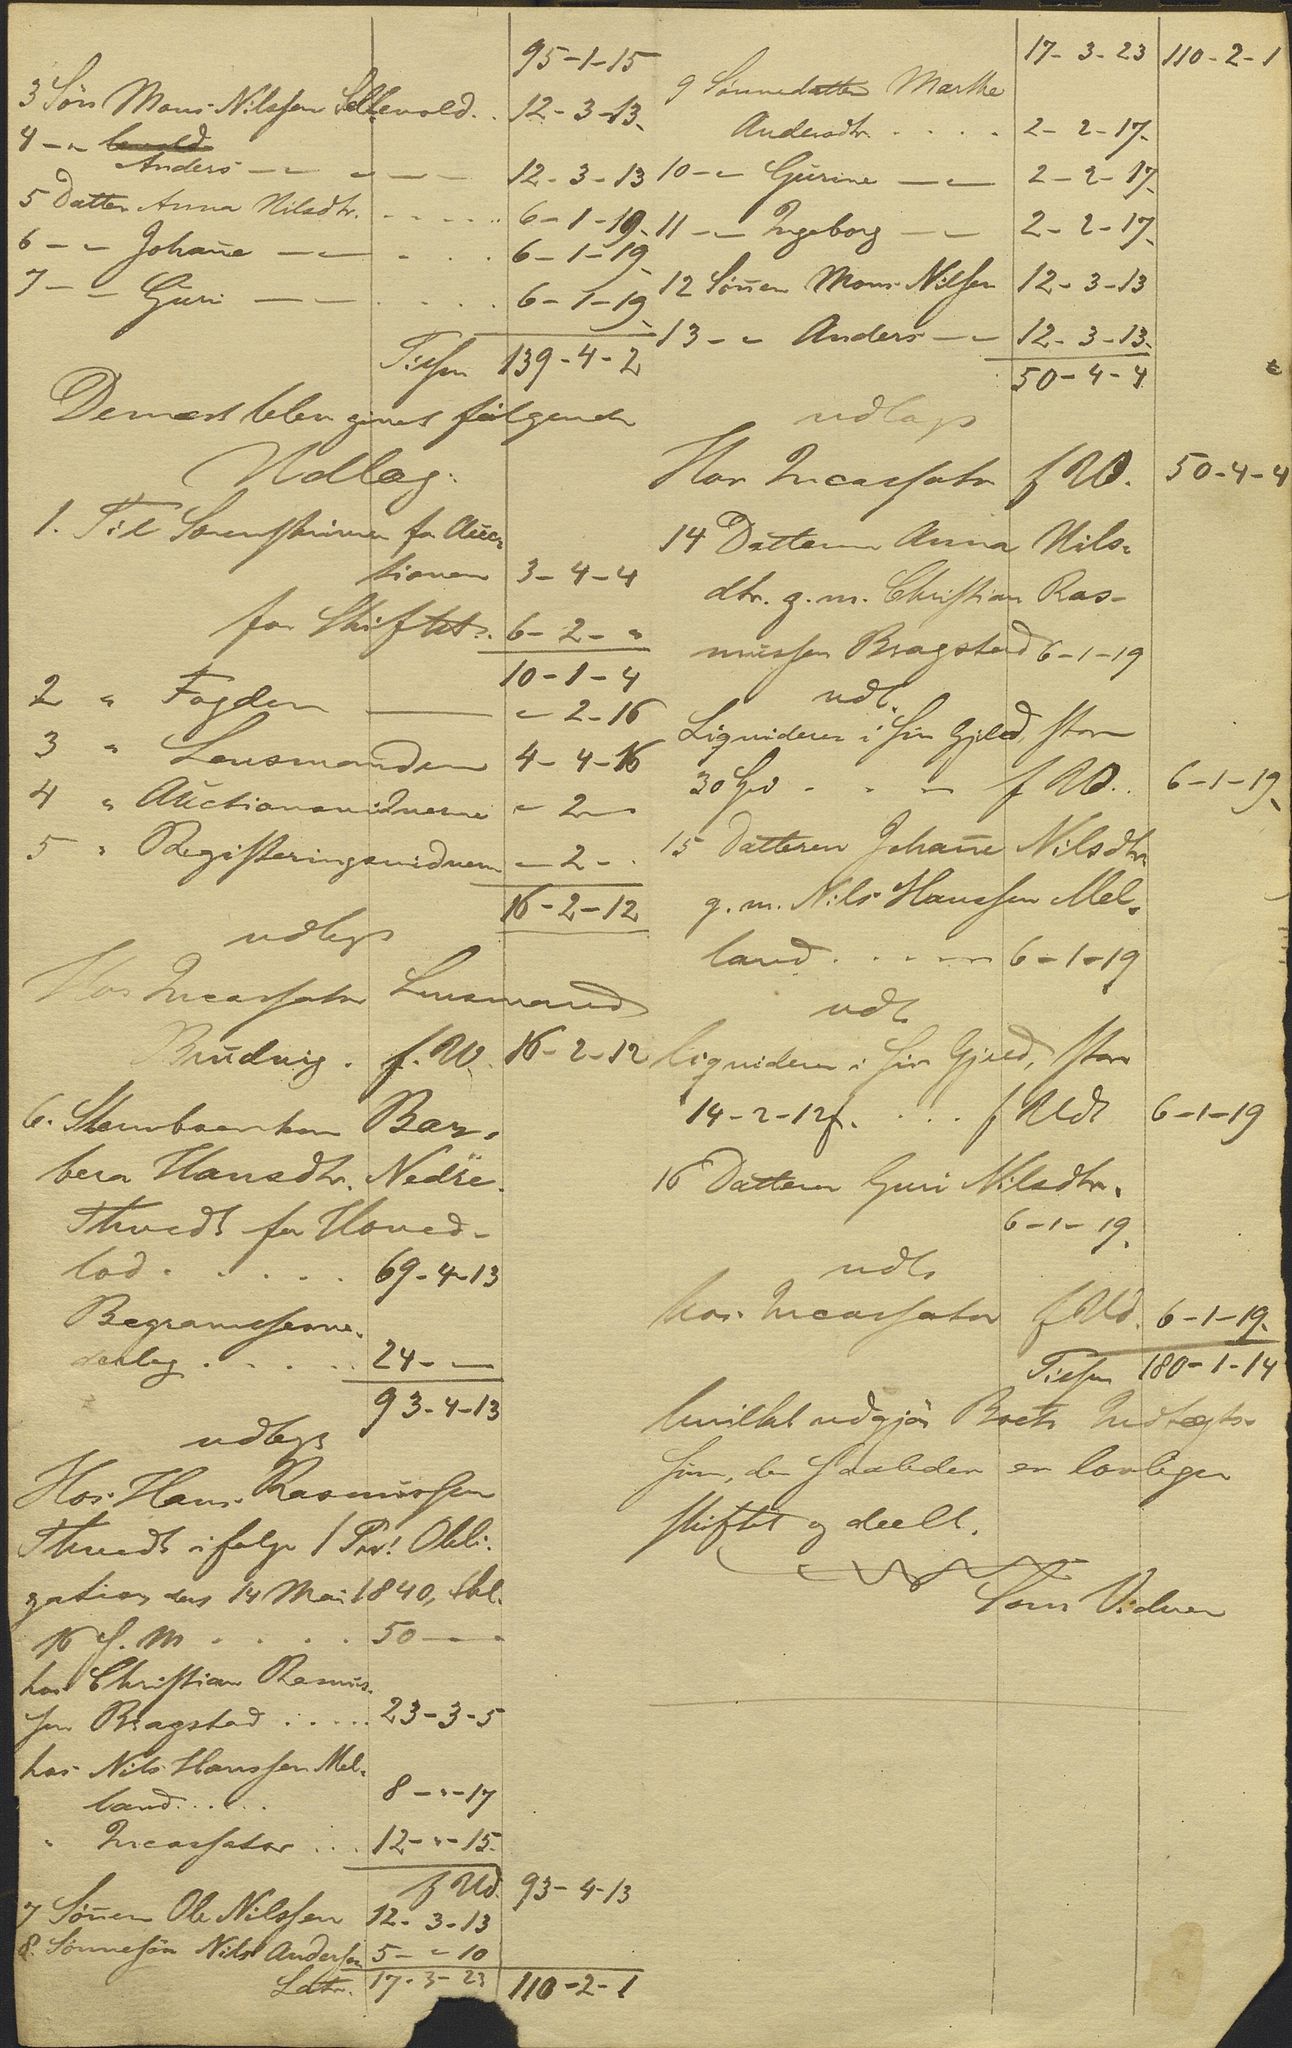 95-1-15
3 Søn Mons Nilssen Sellevold . . 12-3-13
4 - " levold
Anders - - - - 12-3-13
5 Datter Anna Nilsdtr. . . . . . 6-1-19
6 - - Johanne - - . . . 6-1-19
7 - - Guri - - . . . . 6-1-19
Tilsm 139-4-2
Dernæst blev gjort følgende
Udlæg:
1. Til Sorenskriveren for Auc-
tionen 3-4-4
for Skiftet . . 6-2-"
10-1-4
2 " Fogden - " 2-16
3 " Lensmanden 4-4-16
4 " Auctionsvidnerne - 2 -
5 " Registeringsvidnerne - 2 - .
16-2-12
udlagt
Hos Incassator Lensmand
Brudvig . f. Ud. 16-2-12
6. Stervboenken Bar-
bera Hansdtr. Nedre
Thvedt for Hoved-
lod . . . . . 69-4-13
Begravelsesve-
derlag . . . . . 24 - -
93-4-13
udlagt
Hos Hans Rasmussen
Thvedt i følge 1 Pri! Obli-
gation des 14 Mai 1840, tbl.
16 f. M . . . . 50 - -
hos Christian Rasmus-
sen Bragstad . . . . . 23-3-5
hos Nils Hanssen Mel-
land . . . . . 8-"-17
" Incassator . . . 12-"-15
f Ud. 93-4-13
7 Sønnen Ole Nilssen 12-3-13
8. Sønnesøn Nils Anderssen 5-"-10
Latr. 17-3-23 110-2-1
17-3-23 110-2-1
9 Sønnedatter Marthe
Andersdtr. . . . . 2-2-17
10 - - Gurine - - 2-2-17
11 - - Ingeborg - - 2-2-17
12 Sønnen Mons Nilssen 12-3-13
13 - - Anders - - 12-3-13
50-4-4
udlagt
Hos Incassator f Ud. 50-4-4
14 Datteren Anna Nils-
dtr. g.m. Christian Ras-
mussen Bragstad 6-1-19
udl.
Liqviderer i sin Gjeld, stor
30 Spd . . - f Ud. . 6-1-19
15 Datteren Johanne Nilsdtr.
g.m. Nils Hanssen Mel-
land . . . . . 6-1-19
udl.
Liqviderer i sin Gjeld, stor
14-2-12 f. . . . f Udl 6-1-19
16 Datteren Guri Nilsdtr.
6-1-19
udl.
hos Incassator f Ud. 6-1-19
Tilsm 180-1-14
hvilket udgjør Boets Indtægts-
sum, der saaledes er lovligen
skiftet og deelt.
Som Vidner